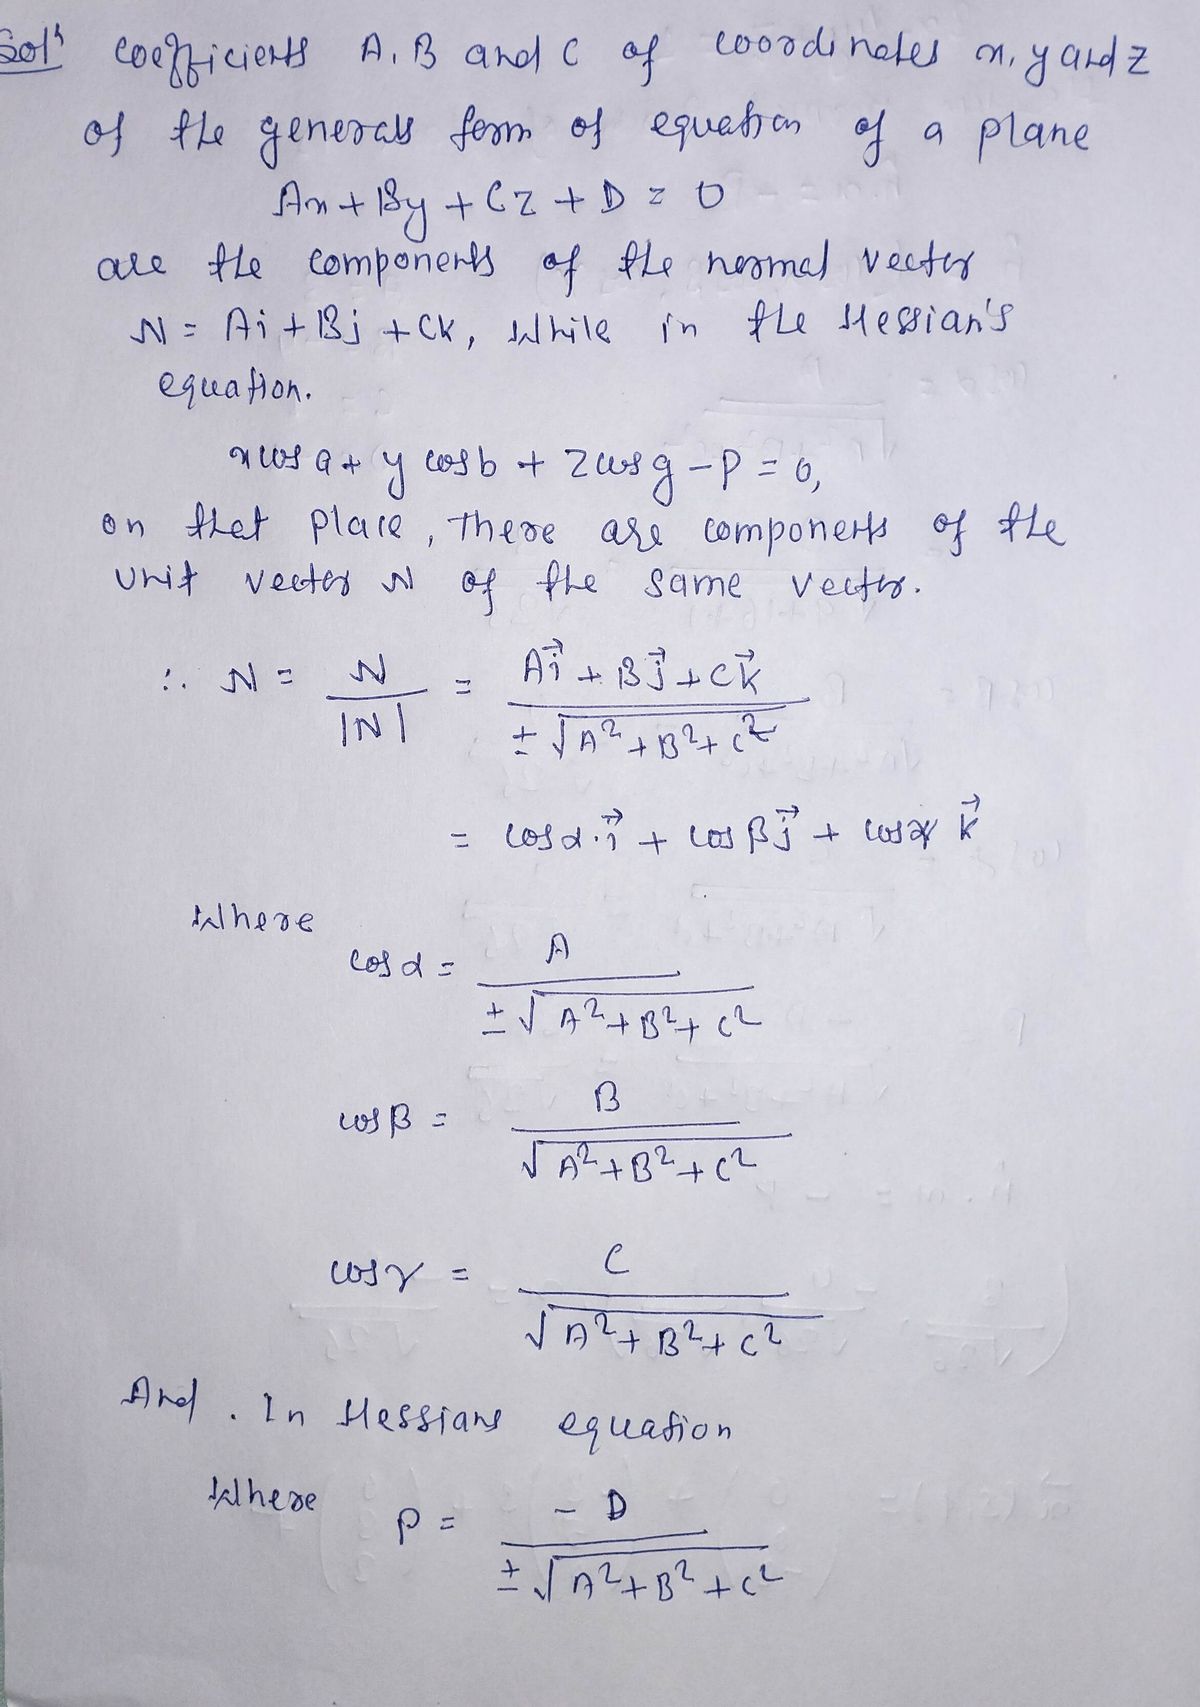 Solⁿ coefficients A, B and C of coordinates x, y and z
of the generall form of equation of a plane
Ax + By + Cz + D = 0
are the components of the normal vector
N = Ai + Bj + Ck, While in the Hessian's
equation.
x cos a + y cos b + z cos g - P = 0,
on that place, There are components of the
unit vector N of the same vector.
∴ N = N / |N| = (A i⃗ + B j⃗ + C k⃗) / (± √(A² + B² + C²))
= cos α · i⃗ + cos β j⃗ + cos γ k⃗
Where
cos α = A / (± √(A² + B² + C²))
cos β = B / √(A² + B² + C²)
cos γ = C / √(A² + B² + C²)
And . In Hessians equation
Where
P = - D / (± √(A² + B² + C²))